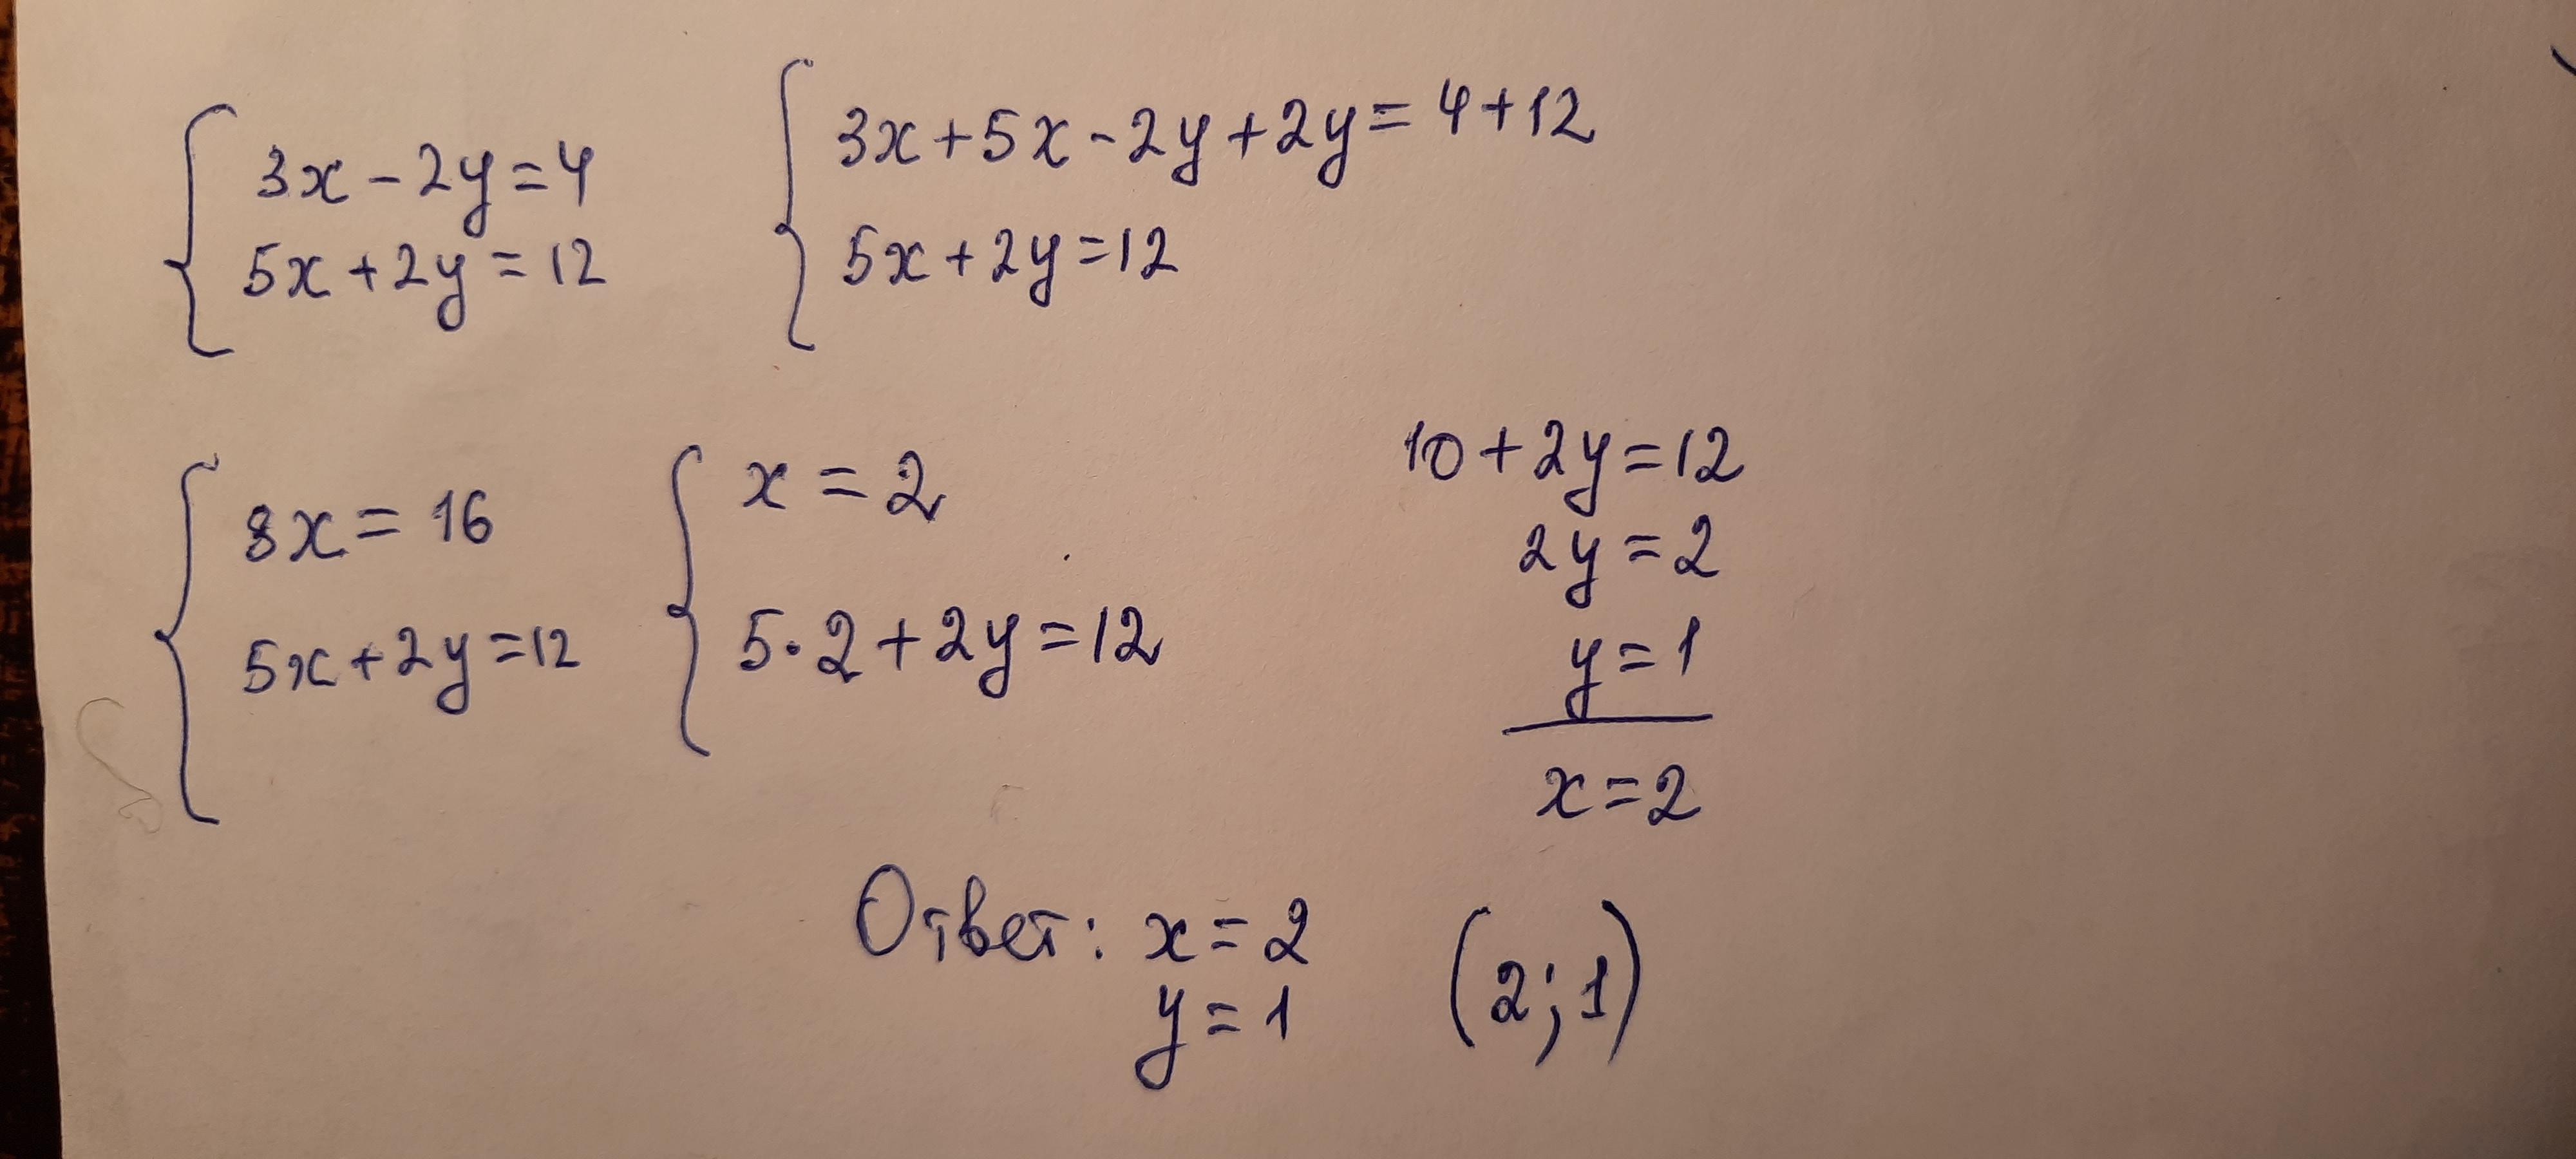 3x-2y=4
5x+2y=12
3x+5x-2y+2y=4+12
5x+2y=12
8x=16
5x+2y=12
x=2
5·2+2y=12
10+2y=12
2y=2
y=1
x=2
Ответ: x=2
y=1
(2;1)